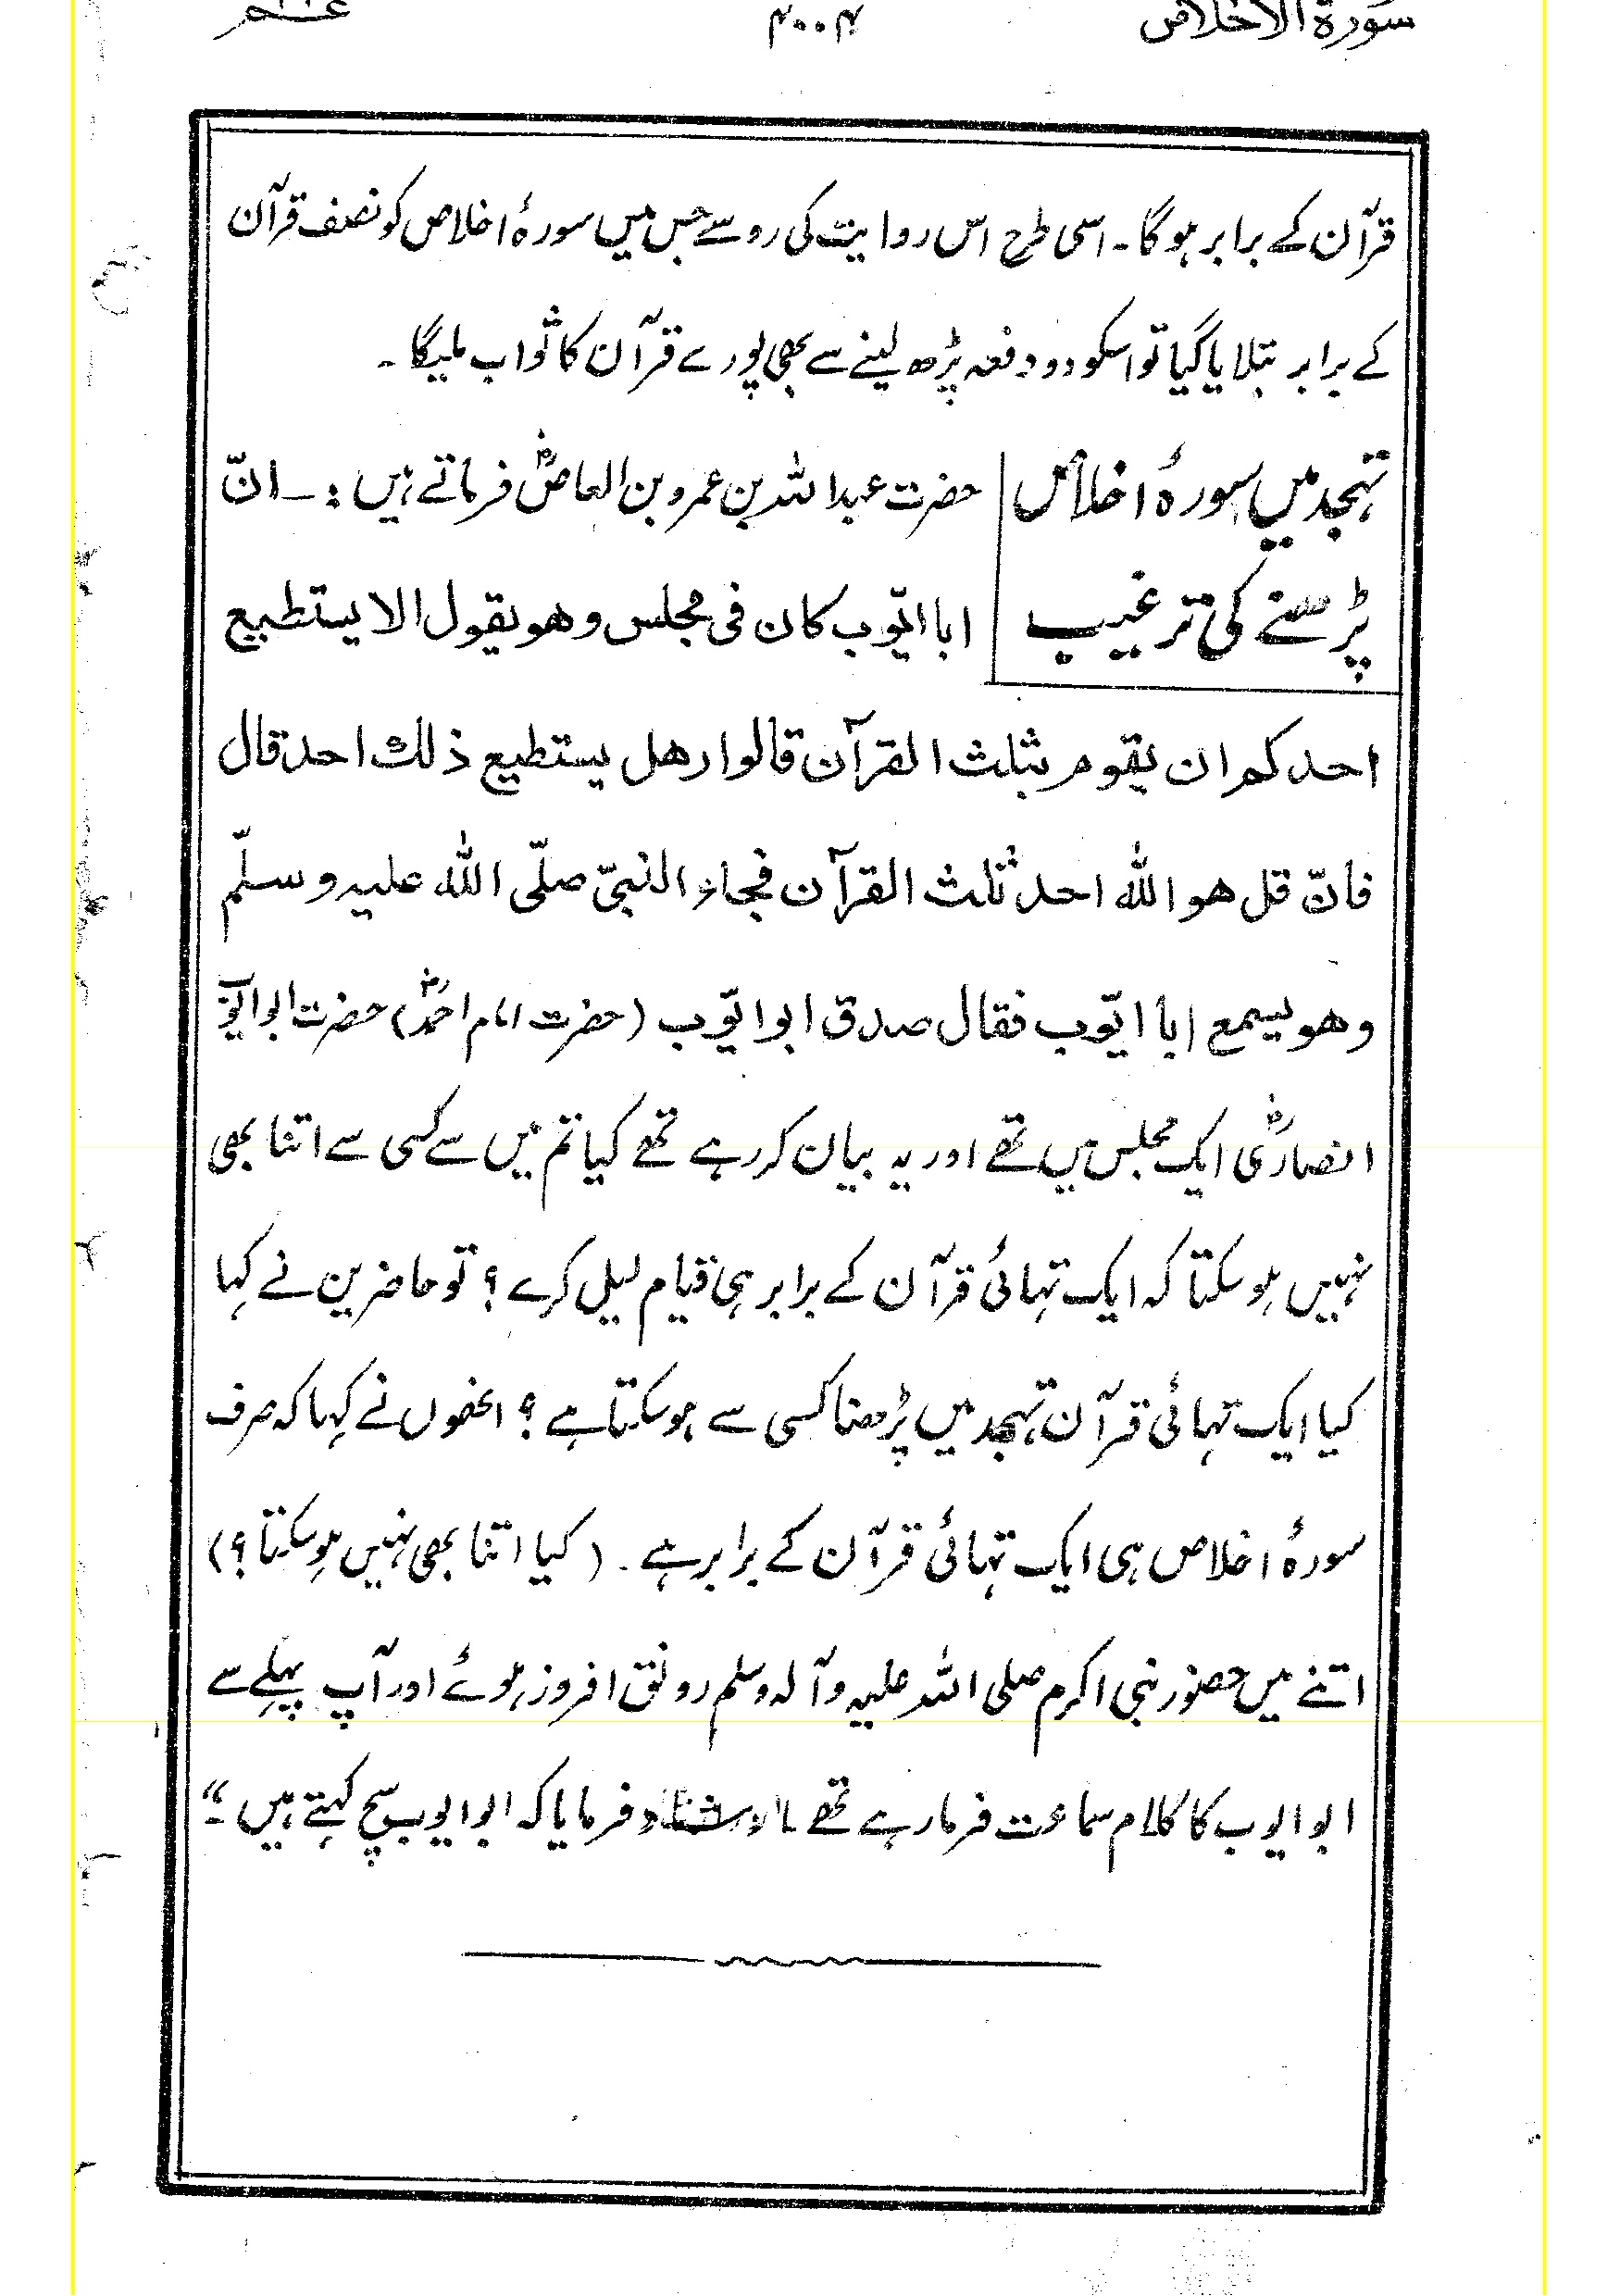 سورة الاخلاص ۴۰۰۴ عم
قرآن کے برابر ہوگا۔ اسی طرح اس روایت کی رو سے جس میں سورۂ اخلاص کو نصف قرآن
کے برابر بتلایا گیا تو اسکو دو دفعہ پڑھ لینے سے بھی پورے قرآن کا ثواب ملیگا۔
تہجد میں سورۂ اخلاص حضرت عبداللہ بن عمرو بن العاصؓ فرماتے ہیں :۔ انّ
پڑھنے کی ترغیب ابا ایّوب کان فی مجلس وھو یقول الا یستطیع
احدکم ان یقوم بثلث القرآن قالوا وھل یستطیع ذلك احد قال
فانّ قل ھو اللّٰہ احد ثلث القرآن فجاء النبیّ صلّی اللّٰہ علیہ وسلّم
وھو یسمع ابا ایّوب فقال صدق ابو ایّوب (حضرت امام احمدؒ) حضرت ابو ایوب
انصاریؓ ایک مجلس میں تھے اور یہ بیان کر رہے تھے کیا تم میں سے کسی سے اتنا بھی
نہیں ہو سکتا کہ ایک تہائی قرآن کے برابر ہی قیام لیل کرے ؟ تو حاضرین نے کہا
کیا ایک تہائی قرآن تہجد میں پڑھنا کسی سے ہو سکتا ہے ؟ انھوں نے کہا کہ صرف
سورۂ اخلاص ہی ایک تہائی قرآن کے برابر ہے۔ (کیا اتنا بھی نہیں ہو سکتا ؟)
اتنے میں حضور نبی اکرم صلی اللہ علیہ وآلہ وسلم رونق افروز ہوئے اور آپ پہلے سے
ابو ایوب کا کلام سماعت فرما رہے تھے ارشاد فرمایا کہ ابو ایوب سچ کہتے ہیں۔"